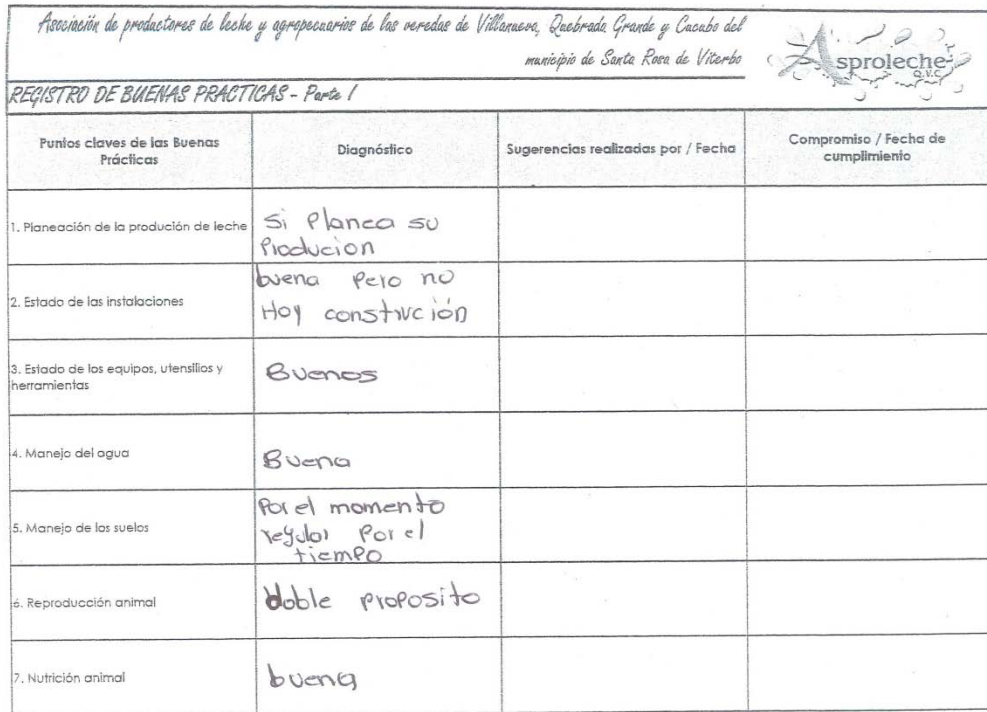 Asociación de productores de leche y agropecuarios de las veredas de Villanueva, Quebrada Grande y Cucubo del
municipio de Santa Rosa de Viterbo
Asproleche
Q.V.C
REGISTRO DE BUENAS PRACTICAS - Parte I
Puntos claves de las Buenas
Prácticas
Diagnóstico
Sugerencias realizadas por / Fecha
Compromiso / Fecha de
cumplimiento
1. Planeación de la produción de leche
Si Planea su
Producion
2. Estado de las instalaciones
buena Pero no
Hay construc ión
3. Estado de los equipos, utensilios y
herramientas
Buenos
4. Manejo del agua
Buena
5. Manejo de los suelos
Por el momento
regular Por el
tiempo
6. Reproducción animal
doble proposito
7. Nutrición animal
buena